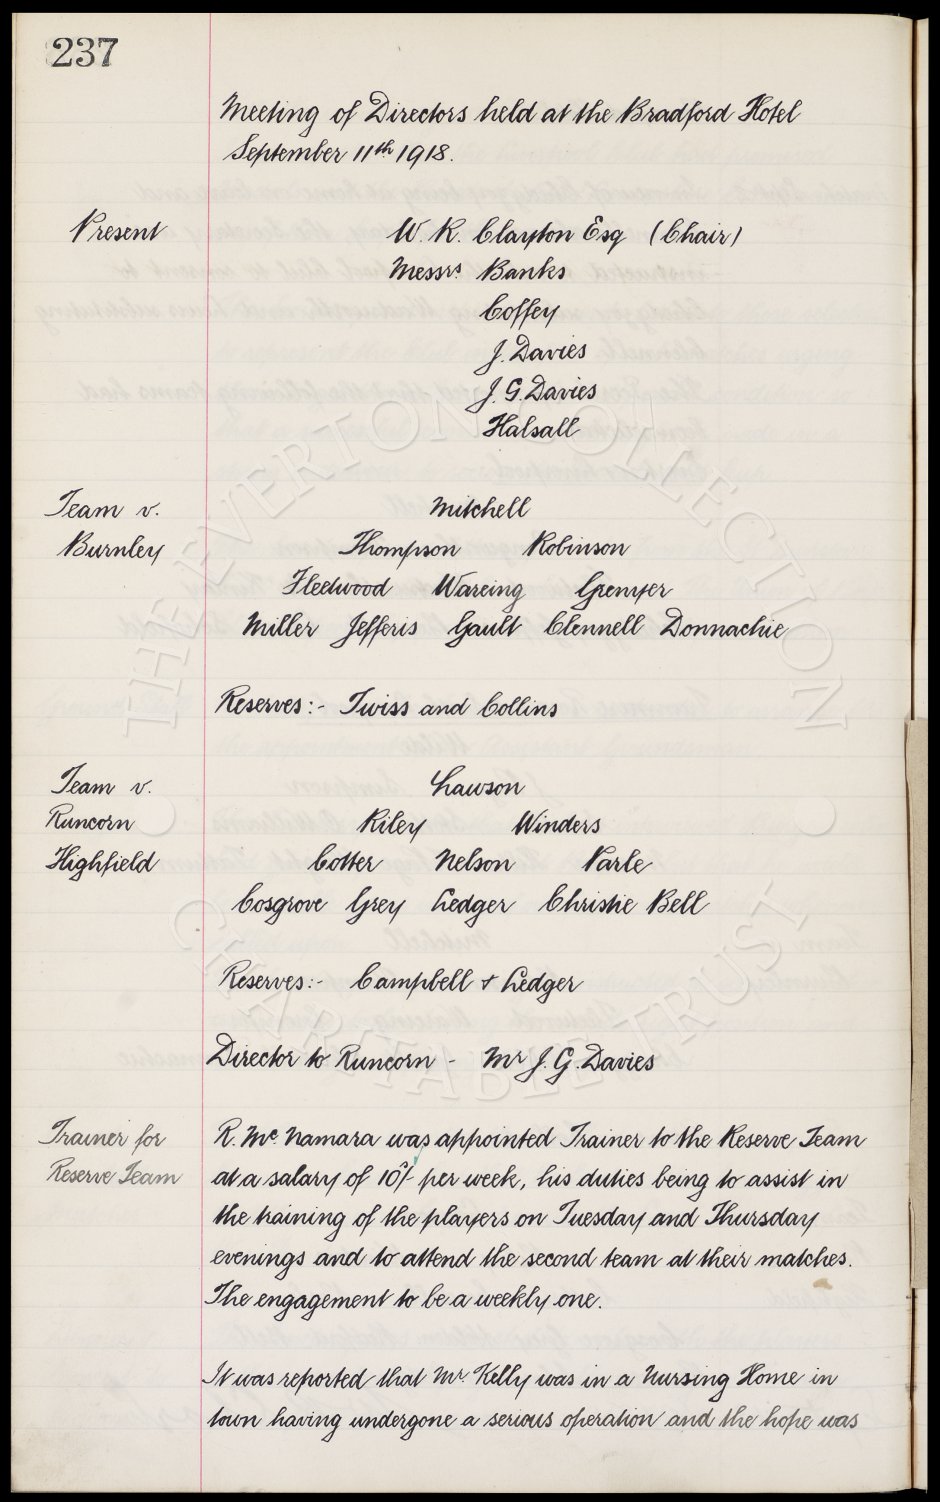 237
Meeting of Directors held at the Bradford Hotel
September 11th 1918.
Present
W. R. Clayton Esq (Chair)
Messrs Banks
Coffey
J. Davies
J. G. Davies
Halsall
Team v.
Burnley
Mitchell
Thompson Robinson
Fleetwood Wareing Grenyer
Miller Jefferis Gault Clennell Donnachie
Reserves:- Twiss and Collins
Team v.
Runcorn
Highfield
Lawson
Riley Winders
Cotter Nelson Parle
Cosgrove Grey Ledger Christie Bell
Reserves:- Campbell & Ledger
Director to Runcorn - Mr J. G. Davies
Trainer for
Reserve Team
R. Mc Namara was appointed Trainer to the Reserve Team
at a salary of 10/- per week, his duties being to assist in
the training of the players on Tuesday and Thursday
evenings and to attend the second team at their matches.
The engagement to be a weekly one.
It was reported that Mr. Kelly was in a Nursing Home in
town having undergone a serious operation and the hope was
THE EVERTON COLLECTION
CHARITABLE TRUST